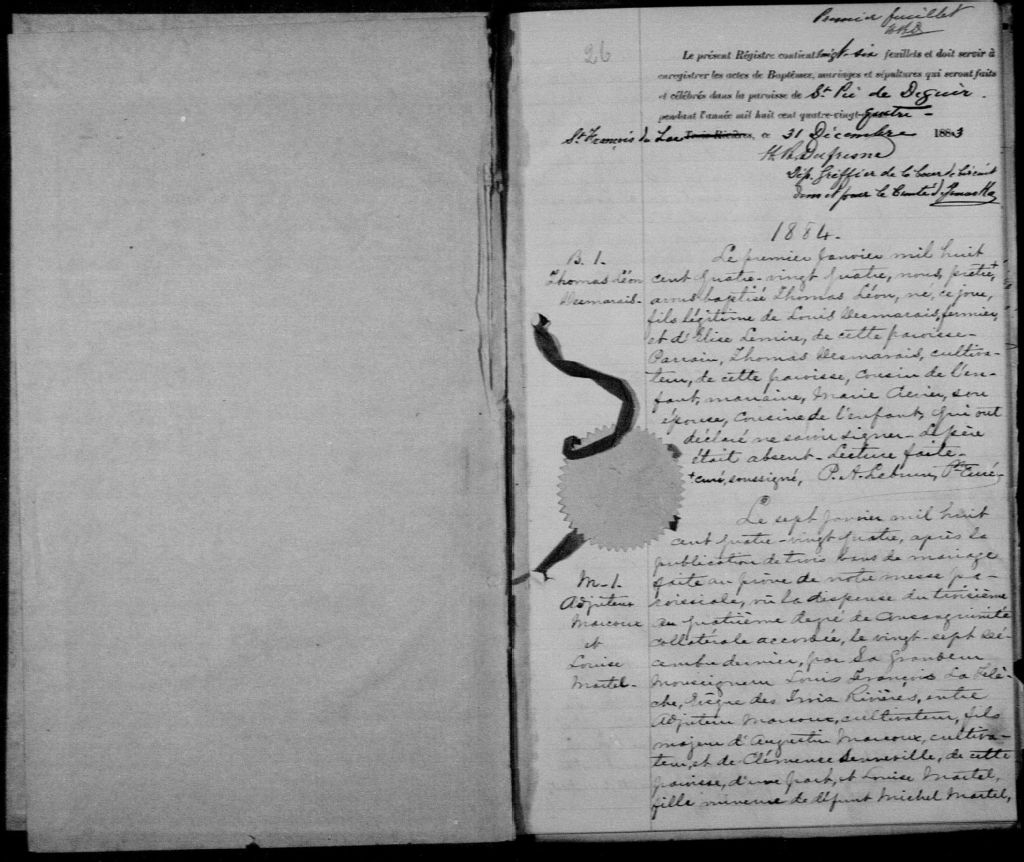 Premier feuillet
HRD
26
Le présent Régistre contient vingt-six feuillets et doit servir à
enregistrer les actes de Baptêmes, mariages et sépultures qui seront faits
et célébrés dans la paroisse de St. Pie de Deguir.
pendant l'année mil huit cent quatre-vingt-quatre-
St. François du Lac Trois-Rivières, ce 31 Décembre 1883
H. R. Dufresne
Dép. Greffier de la Cour de Circuit
dans et pour le Comté d'Yamaska
1884.
B. 1.
Thomas Léon
Desmarais-
Le premier Janvier mil huit
cent quatre-vingt quatre, nous, prêtre,+
avons baptisé Thomas Léon, né, ce jour,
fils légitime de Louis Desmarais, fermier,
et d'Elise Lemire, de cette paroisse-
Parrain, Thomas Desmarais, cultiva-
teur, de cette paroisse, cousin de l'en-
fant, marraine, Marie son
épouse, cousine de l'enfant, qui ont
déclaré ne savoir signer- Le père
était absent- Lecture faite-
+curé, soussigné, P. A. Lebrun, Ptre Curé-
M-1.
Adjuteur
Marcoux
et
Louise
Martel-
Le sept Janvier mil huit
cent quatre-vingt quatre, après la
publication de trois bans de mariage
faite au prône de notre messe pa-
roissiale, vû la dispense du troisième
au quatrième degré de consanguinité
collatérale accordée, le vingt-sept dé-
cembre dernier, par Sa Grandeur
Monseigneur Louis François La Flè-
che, Evêque des Trois Rivières, entre
Adjuteur Marcoux, cultivateur, fils
majeur d'Augustin Marcoux, cultiva-
teur, et de Clémence Senneville, de cette
paroisse, d'une part, et Louise Martel,
fille mineure de défunt Michel Martel,